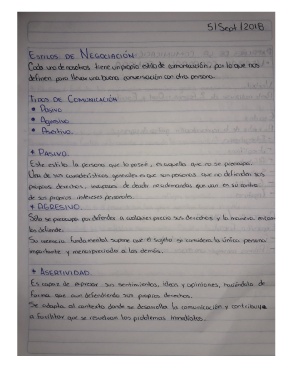 5/Sept/2018
ESTILOS DE NEGOCIACIÓN
Cada uno de nosotros tiene un propio estilo de comunicación, por lo que nos
definen para llevar una buena conversación con otra persona.
TIPOS DE COMUNICACIÓN
• Pasivo
• Agresivo
• Asertivo.
+ PASIVO.
Este estilo la persona que lo posee, es aquella que no se preocupa.
Una de sus características generales es que son personas que no defienden sus
propios derechos, incapaces de decidir resultados que van en su contra
de sus propios intereses personales.
+ AGRESIVO.
Sólo se preocupa por defender a cualquier precio sus derechos y la manera
los defiende.
Su vivencia fundamental supone que el sujeto se considera la única persona
importante y menospreciada a los demás.
+ ASERTIVIDAD
Es capaz de expresar sus sentimientos, ideas y opiniones, haciéndolo de
forma que aun defendiendo sus propios derechos.
Se adapta al contexto donde se desarrolla la comunicación y contribuye
a facilitar que se resuelvan los problemas inmediatos.